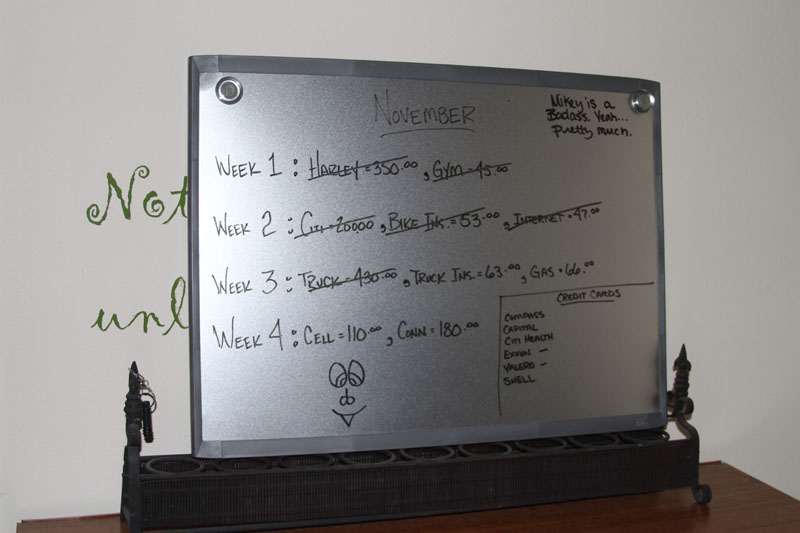 NOVEMBER
Mikey is a
Badass. Yeah...
Pretty much.
WEEK 1 : HARLEY = 350.00, GYM = 45.00
WEEK 2 : CITI = 200.00, BIKE INS. = 53.00, INTERNET = 47.00
WEEK 3 : TRUCK = 430.00, TRUCK INS. = 63.00, GAS = 66.00
WEEK 4 : CELL = 110.00, CONN = 180.00
CREDIT CARDS
COMPASS
CAPITAL
CITI HEALTH
EXXON –
VALERO –
SHELL
Not
unl